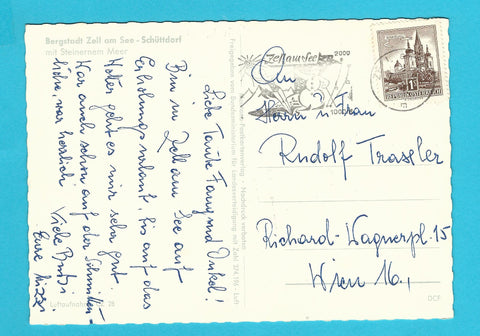 Bergstadt Zell am See - Schüttdorf
mit Steinernem Meer
Liebe Tante Fanny und Onkel!
Bin in Zell am See auf
Erholungsurlaub, bis auf das
Wetter geht es mir sehr gut.
War auch schon auf der Schmitten-
höhe, war herrlich
Viele Bussi
Eure
Luftaufnahme
Zell am See
2000
1000
REPUBLIK ÖSTERREICH
An
Herrn u. Frau
Rudolf Trassler
Richard-Wagnerpl. 15
Wien 16.,
DCF